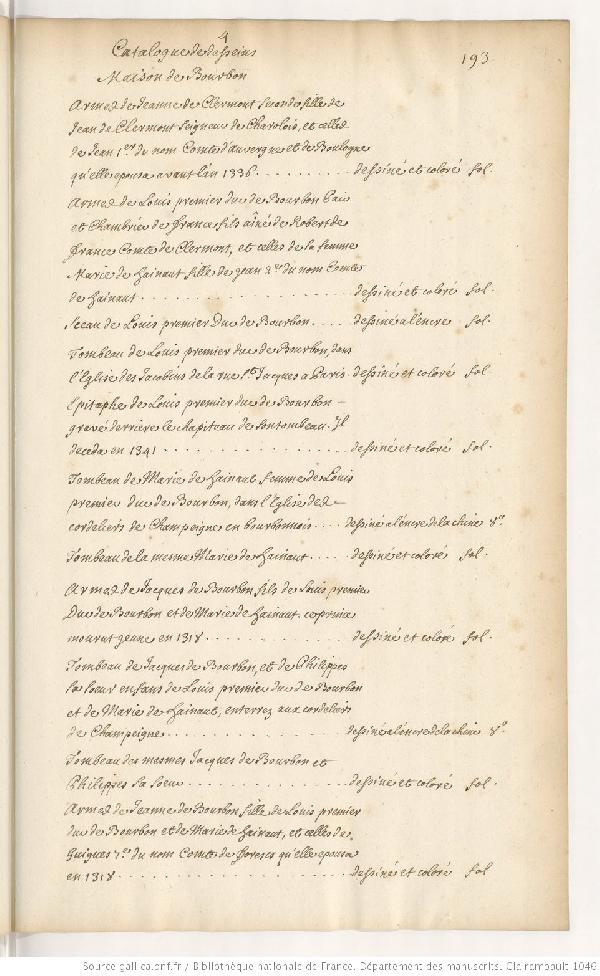 4
Catalogue de desseins
193.
Maison de Bourbon
Armes de Jeanne de Clermont seconde fille de
Jean de Clermont seigneur de Charolois, et celles
de Jean 1.er du nom Comte d'auvergne et de Boulogne
qu'elle epousa avant l'an 1336. . . . . . . . . . dessiné et coloré fol.
Armes de Louis premier duc de Bourbon Pair
et Chambrier de france fils aîné de Robert de
france Comte de Clermont, et celles de sa femme
Marie de hainaut fille de jean 2.e du nom Comte
de hainaut . . . . . . . . . . . . . . . dessiné et coloré fol.
Sceau de Louis premier Duc de Bourbon . . . . dessiné a l'encre fol.
Tombeau de Louis premier duc de Bourbon, dans
l'Eglise des Jacobins de la rue S.t Jacques a Paris dessiné et coloré fol
Epitaphe de Louis premier duc de Bourbon –
gravé derriere le chapiteau de son tombeau. Il
deceda en 1341 . . . . . . . . . . . . . . dessiné et coloré fol.
Tombeau de Marie de hainaut femme de Louis
premier duc de Bourbon, dans l'Eglise des –
cordeliers de Champeigne en bourbonnois . . . . dessiné a l'encre de la chine 8.o
Tombeau de la mesme Marie de hainaut . . . . dessiné et coloré fol.
Armes de Jacques de Bourbon fils de Louis premier
Duc de Bourbon et de Marie de hainaut. ce prince
mourut jeune en 1318 . . . . . . . . . . . dessiné et coloré fol.
Tombeau de Jacques de Bourbon, et de Philippes
sa soeur enfans de Louis premier duc de Bourbon
et de Marie de hainaut, enterrez aux cordeliers
de Champeigne . . . . . . . . . . . . . dessiné a l'encre de la chine 8.o
Tombeau des mesmes Jacques de Bourbon et
Philippes sa soeur . . . . . . . . . . . . dessiné et coloré fol.
Armes de Jeanne de Bourbon fille de Louis premier
duc de Bourbon et de Marie de hainaut, et celles de
Guigues 7.e du nom Comte de forests qu'elle epousa
en 1318 . . . . . . . . . . . . . . . . . dessiné et coloré fol
Source gallica.bnf.fr / Bibliothèque nationale de France. Département des manuscrits. Clairambault 1046